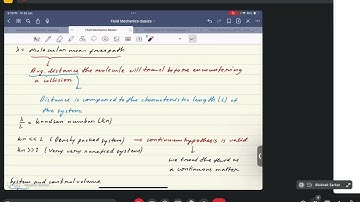 Fluid Mechanics-Basics
λ = Molecular mean freepath
Avg. distance the molecule will travel before encountering
a collision
Distance is compared to the characteristic length (L) of
the system
λ/L = knudsen number (kn)
kn << 1 (Densely packed system) → continuum hypothesis is valid
kn >> 1 (very very rarefied system)
we treat the fluid as
a continuous matter
System and control volume
Rishiek Sarkar